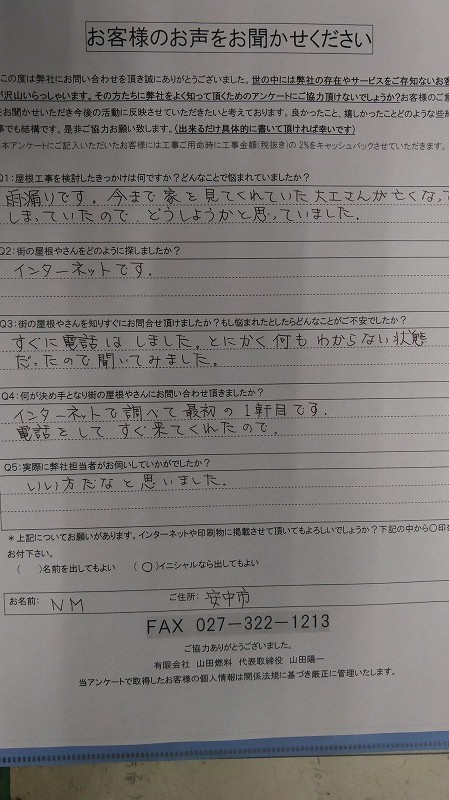 お客様のお声をお聞かせください
この度は弊社にお問い合わせを頂き誠にありがとうございました。世の中には弊社の存在やサービスをご存知ないお客
が沢山いらっしゃいます。その方たちに弊社をよく知って頂くためのアンケートにご協力頂けないでしょうか?お客様のご意
をお聞かせいただき今後の活動に反映させていただきたいと考えております。良かったこと、嬉しかったことどのような些細
事でも結構です。是非ご協力お願い致します。(出来るだけ具体的に書いて頂ければ幸いです)
本アンケートにご記入いただいたお客様には工事ご用命時に工事金額(税抜き)の2%をキャッシュバックさせていただきます。
Q1:屋根工事を検討したきっかけは何ですか?どんなことで悩まれていましたか?
雨漏りです。今まで家を見てくれていた大工さんが亡くなって
しまっていたので どうしようかと思っていました.
Q2:街の屋根やさんをどのように探しましたか?
インターネットです.
Q3:街の屋根やさんを知りすぐにお問合せ頂けましたか?もし悩まれたとしたらどんなことがご不安でしたか?
すぐに電話はしました。とにかく何もわからない状態
だったので聞いてみました。
Q4:何が決め手となり街の屋根やさんにお問い合わせ頂きましたか?
インターネットで調べて最初の1軒目です.
電話をしてすぐ来てくれたので.
Q5:実際に弊社担当者がお伺いしていかがでしたか?
いい方だなと思いました.
*上記についてお願いがあります。インターネットや印刷物に掲載させて頂いてもよろしいでしょうか?下記の中から○印を
お付下さい。
( )名前を出してもよい (○)イニシャルなら出してもよい
お名前: NM ご住所: 安中市
FAX 027-322-1213
ご協力ありがとうございました。
有限会社 山田燃料 代表取締役 山田陽一
当アンケートで取得したお客様の個人情報は関係法規に基づき厳正に管理いたします。